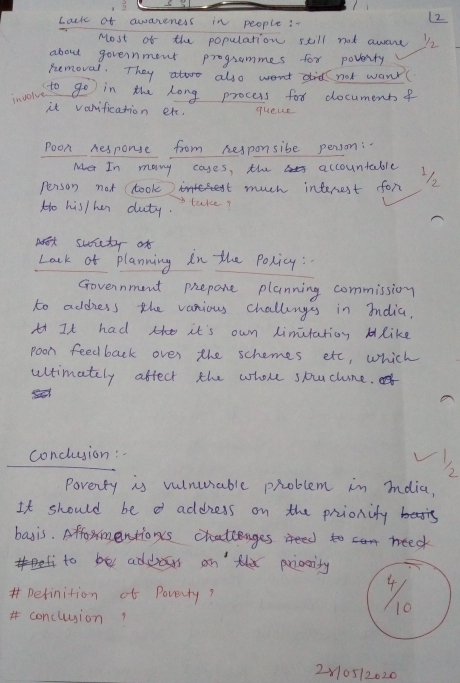 2
Lack of awareness in people :-
Most of the population still not aware
about government programmes for poverty 1/2
removal. They also also want did not want
involve to go in the long process for document &
it varification etc. queue
Poor response from responsibe person :-
In many cases, the accountable
person not took interest much interest for 1/2
to his/her duty. take ?
Not swiety of
Lack of planning in the Policy :-
Government prepare planning commission
to address the various challenges in India,
It had the it's own limitation like
poor feedback over the schemes etc, which
ultimately affect the whole structure. of
Conclusion :- 1/2
Poverty is vulnurable problem in India,
It should be address on the priority basis
basis. Afformentions challenges need to can need
to be address on the priority
# Definition of Poverty ? 4/10
# conclusion ?
28/05/2020